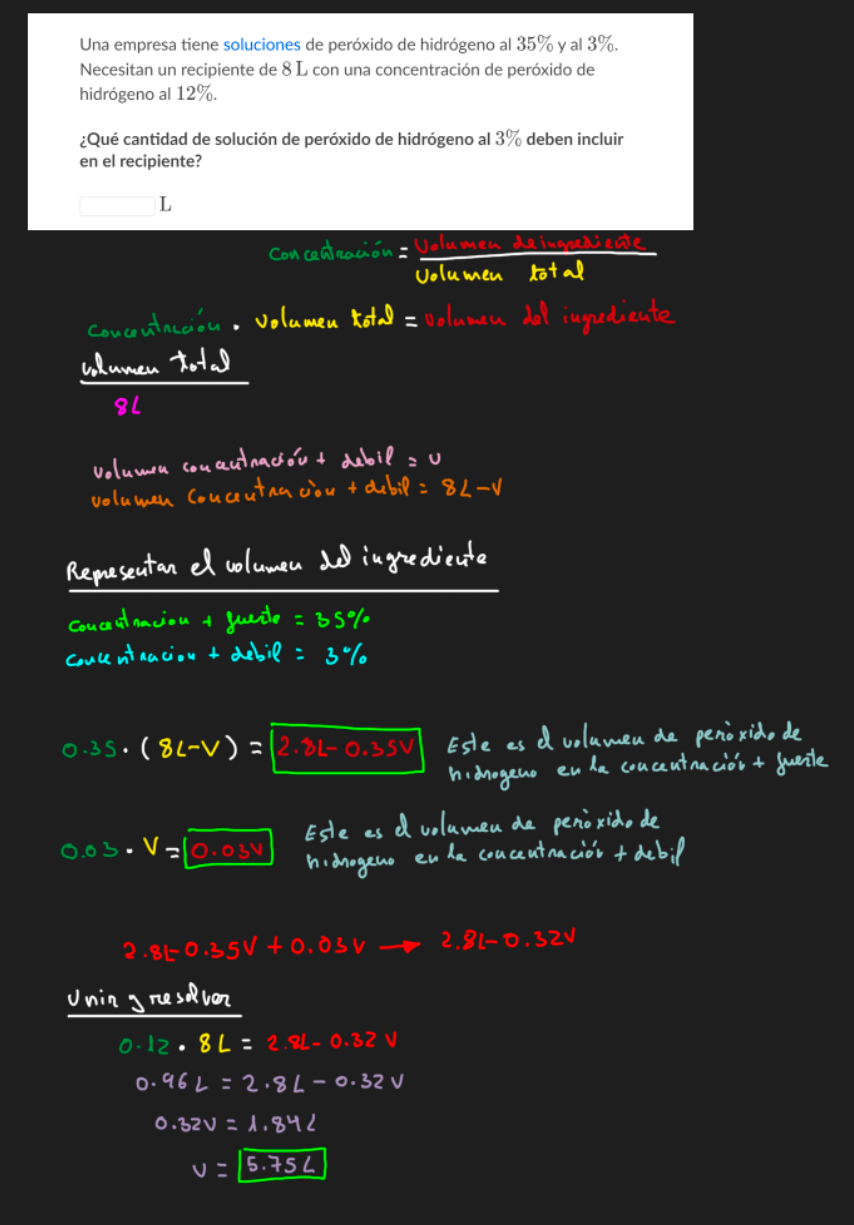 Una empresa tiene soluciones de peróxido de hidrógeno al 35% y al 3%.
Necesitan un recipiente de 8 L con una concentración de peróxido de
hidrógeno al 12%.
¿Qué cantidad de solución de peróxido de hidrógeno al 3% deben incluir
en el recipiente?
L
Concentración = Volumen de ingrediente / Volumen total
Concentración . Volumen total = volumen del ingrediente
volumen total
8L
volumen concentración + debil = v
volumen Concentración + debil = 8L-V
Representar el volumen del ingrediente
Concentracion + fuerte = 35%
Concentracion + debil = 3%
0.35 . (8L-V) = 2.8L-0.35V Este es el volumen de peróxido de
hidrogeno en la concentración + fuerte
0.03 . V = 0.03V Este es el volumen de peróxido de
hidrogeno en la concentración + debil
2.8L-0.35V + 0.03V → 2.8L-0.32V
Unir y resolver
0.12 . 8L = 2.8L-0.32V
0.96L = 2.8L-0.32V
0.32V = 1.84L
v = 5.75L